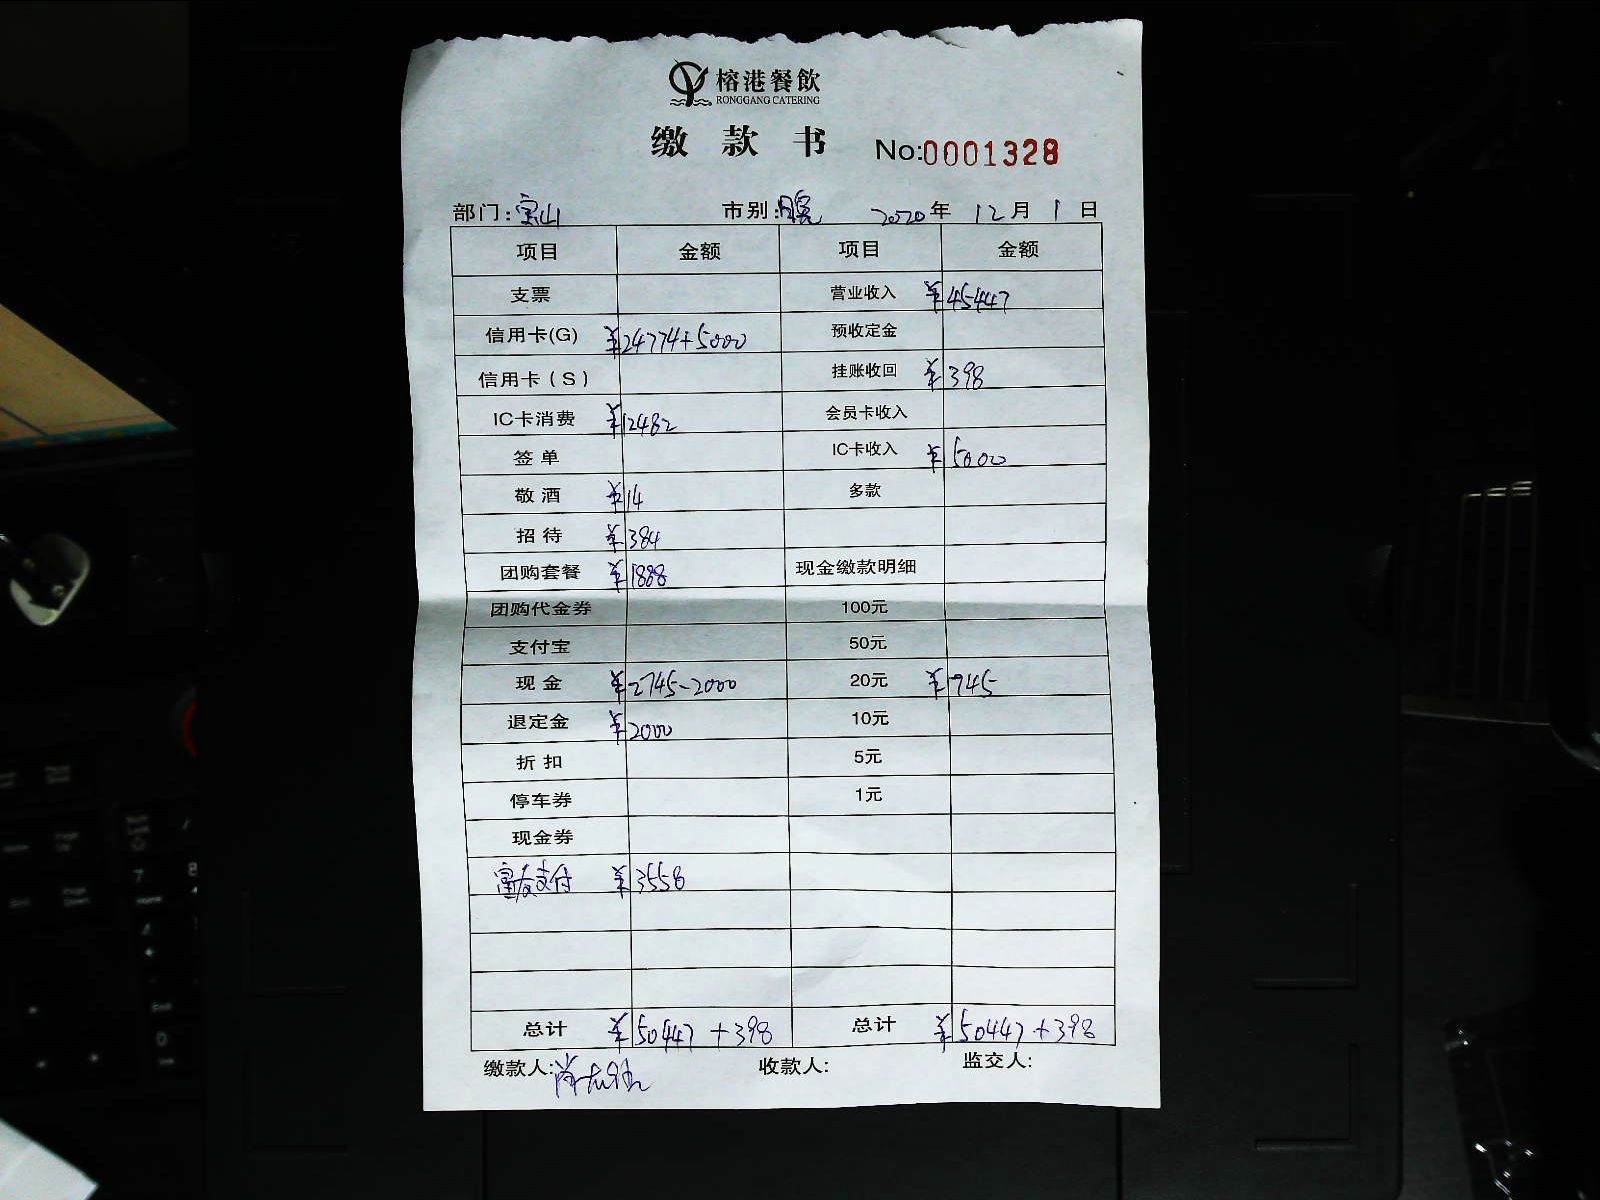 榕港餐飲
RONGGANG CATERING
缴款书 No:0001328
部门:宝山 市别:晚 2020年12月1日
项目 金额 项目 金额
支票 营业收入 ¥45447
信用卡(G) ¥24774+5000 预收定金
信用卡(S) 挂账收回 ¥398
IC卡消费 ¥12482 会员卡收入
签单 IC卡收入 ¥5000
敬酒 ¥14 多款
招待 ¥384
团购套餐 ¥1888 现金缴款明细
团购代金券 100元
支付宝 50元
现金 ¥2745-2000 20元 ¥745
退定金 ¥2000 10元
折扣 5元
停车券 1元
现金券
富友支付 ¥3558
总计 ¥50447+398 总计 ¥50447+398
缴款人: 收款人: 监交人: